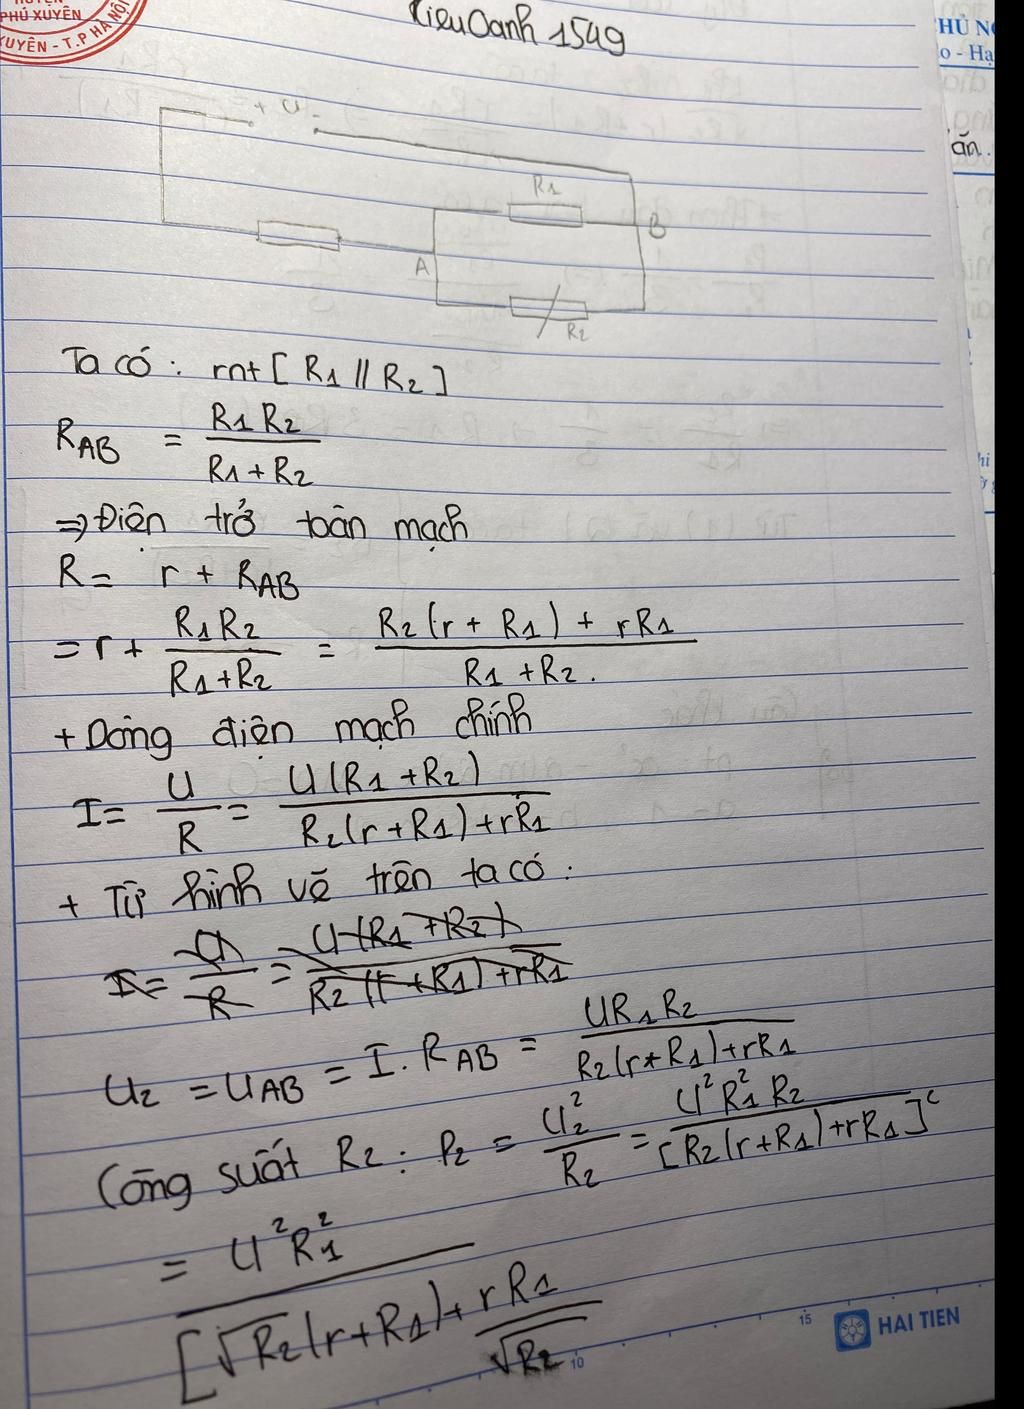 PHÚ XUYÊN
XUYÊN - T.P HÀ NỘI
KieuOanh 1549
+ U -
R1
B
A
R2
Ta có : rnt [ R1 // R2 ]
R_AB = R1 R2 / R1 + R2
=> Điện trở toàn mạch
R = r + R_AB
= r + R1 R2 / R1 + R2 = R2 (r + R1) + rR1 / R1 + R2.
+ Dòng điện mạch chính
I = U / R = U (R1 + R2) / R2 (r + R1) + rR1
+ Từ hình vẽ trên ta có :
I = U / R = U (R1 + R2) / R2 (r + R1) + rR1
U2 = U_AB = I . R_AB = UR1 R2 / R2 (r + R1) + rR1
Công suất R2 : P2 = U2² / R2 = U² R1² R2 / [R2 (r + R1) + rR1]²
= U² R1² / [√R2 (r + R1) + rR1 / √R2
10
15
HAI TIEN
HỦ N
o - Hạ
ăn.